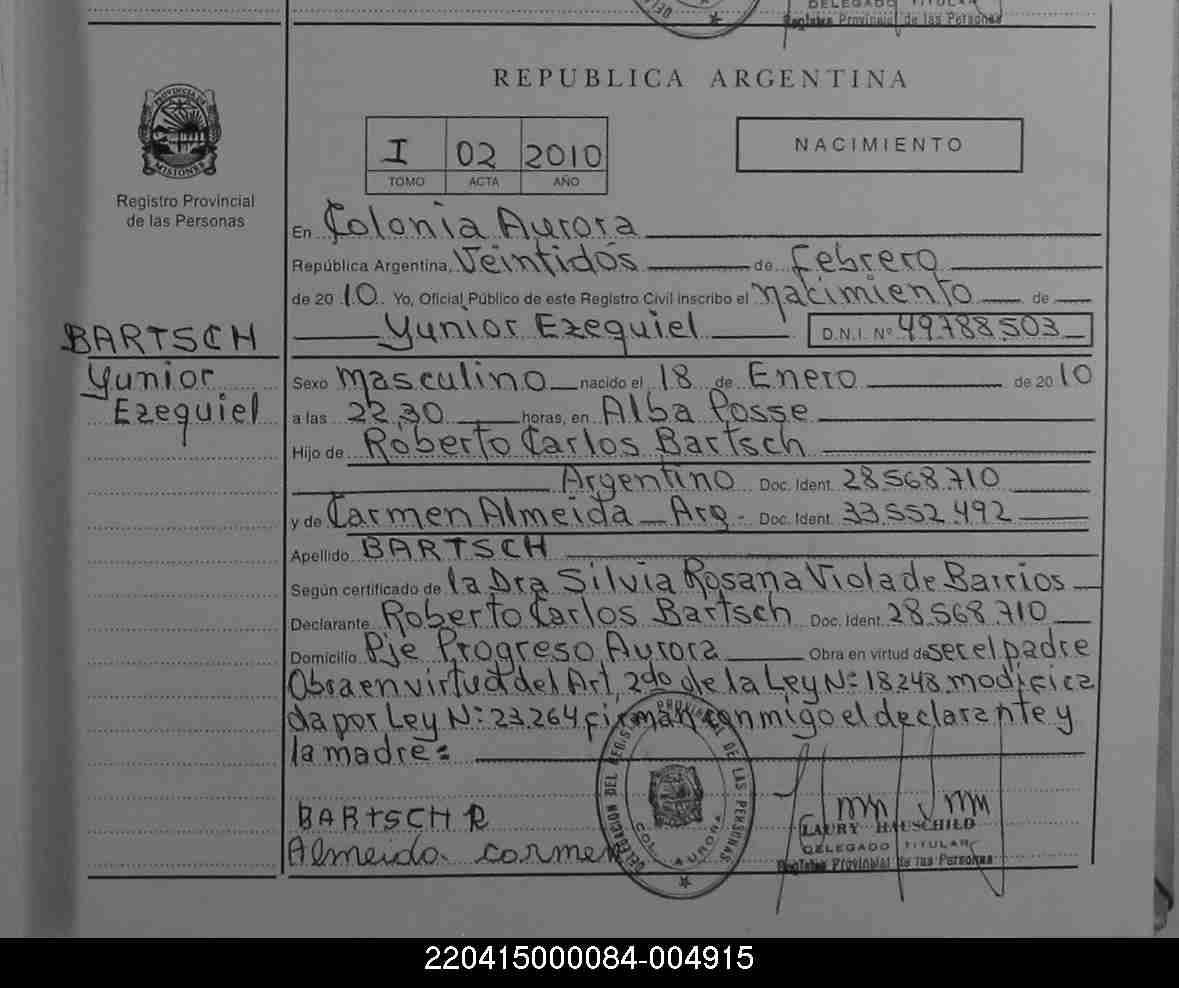 DELEGADO TITULAR
Registro Provincial de las Personas
REPUBLICA ARGENTINA
PROVINCIA DE
MISIONES
Registro Provincial
de las Personas
I 02 2010
TOMO ACTA AÑO
NACIMIENTO
En Colonia Aurora
República Argentina, Veintidós de febrero
de 2010. Yo, Oficial Público de este Registro Civil inscribo el nacimiento de
Yunior Ezequiel D.N.I. Nº 49.788.503
BARTSCH
Yunior
Ezequiel
Sexo masculino nacido el 18 de Enero de 2010
a las 22,30 horas, en Alba Posse
Hijo de Roberto Carlos Bartsch
Argentino Doc. Ident. 28.568.710
y de Carmen Almeida - Arg - Doc. Ident. 33.552.492
Apellido BARTSCH
Según certificado de la Dra Silvia Rosana Viola de Barrios
Declarante Roberto Carlos Bartsch Doc. Ident. 28.568.710
Domicilio Pje Progreso Aurora Obra en virtud de ser el padre
Obra en virtud del Art, 2do de la Ley Nº 18248 modifica
da por Ley Nº: 23.264 firman conmigo el declarante y
la madre=
BARTSCH R
Almeida carmen
DELEGACION DEL REGISTRO PROVINCIAL DE LAS PERSONAS
COL. AURORA
LAURY HAUSCHILD
DELEGADO TITULAR
Registro Provincial de las Personas
220415000084-004915